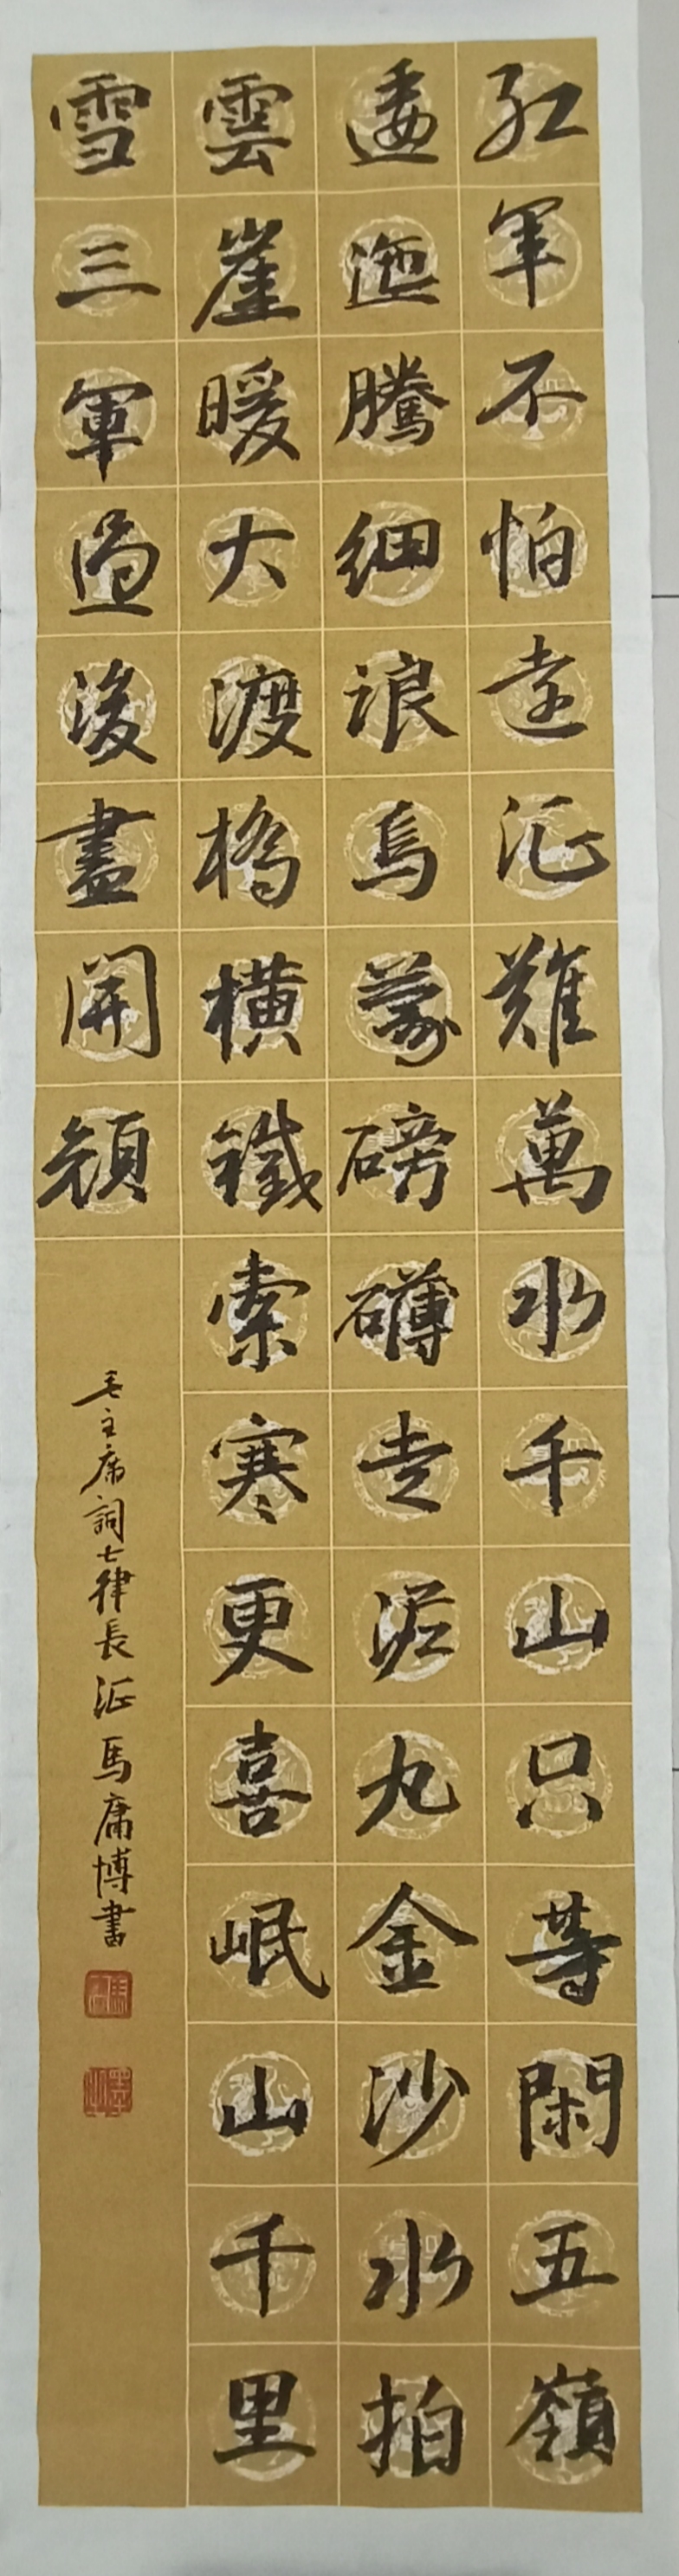 红军不怕遠征難萬水千山只等閑五嶺
逶迤騰细浪烏蒙磅礴走泥丸金沙水拍
雲崖暖大渡橋橫鐵索寒更喜岷山千里
雪三軍過後盡開顏
毛主席詞七律長征馬庸博書